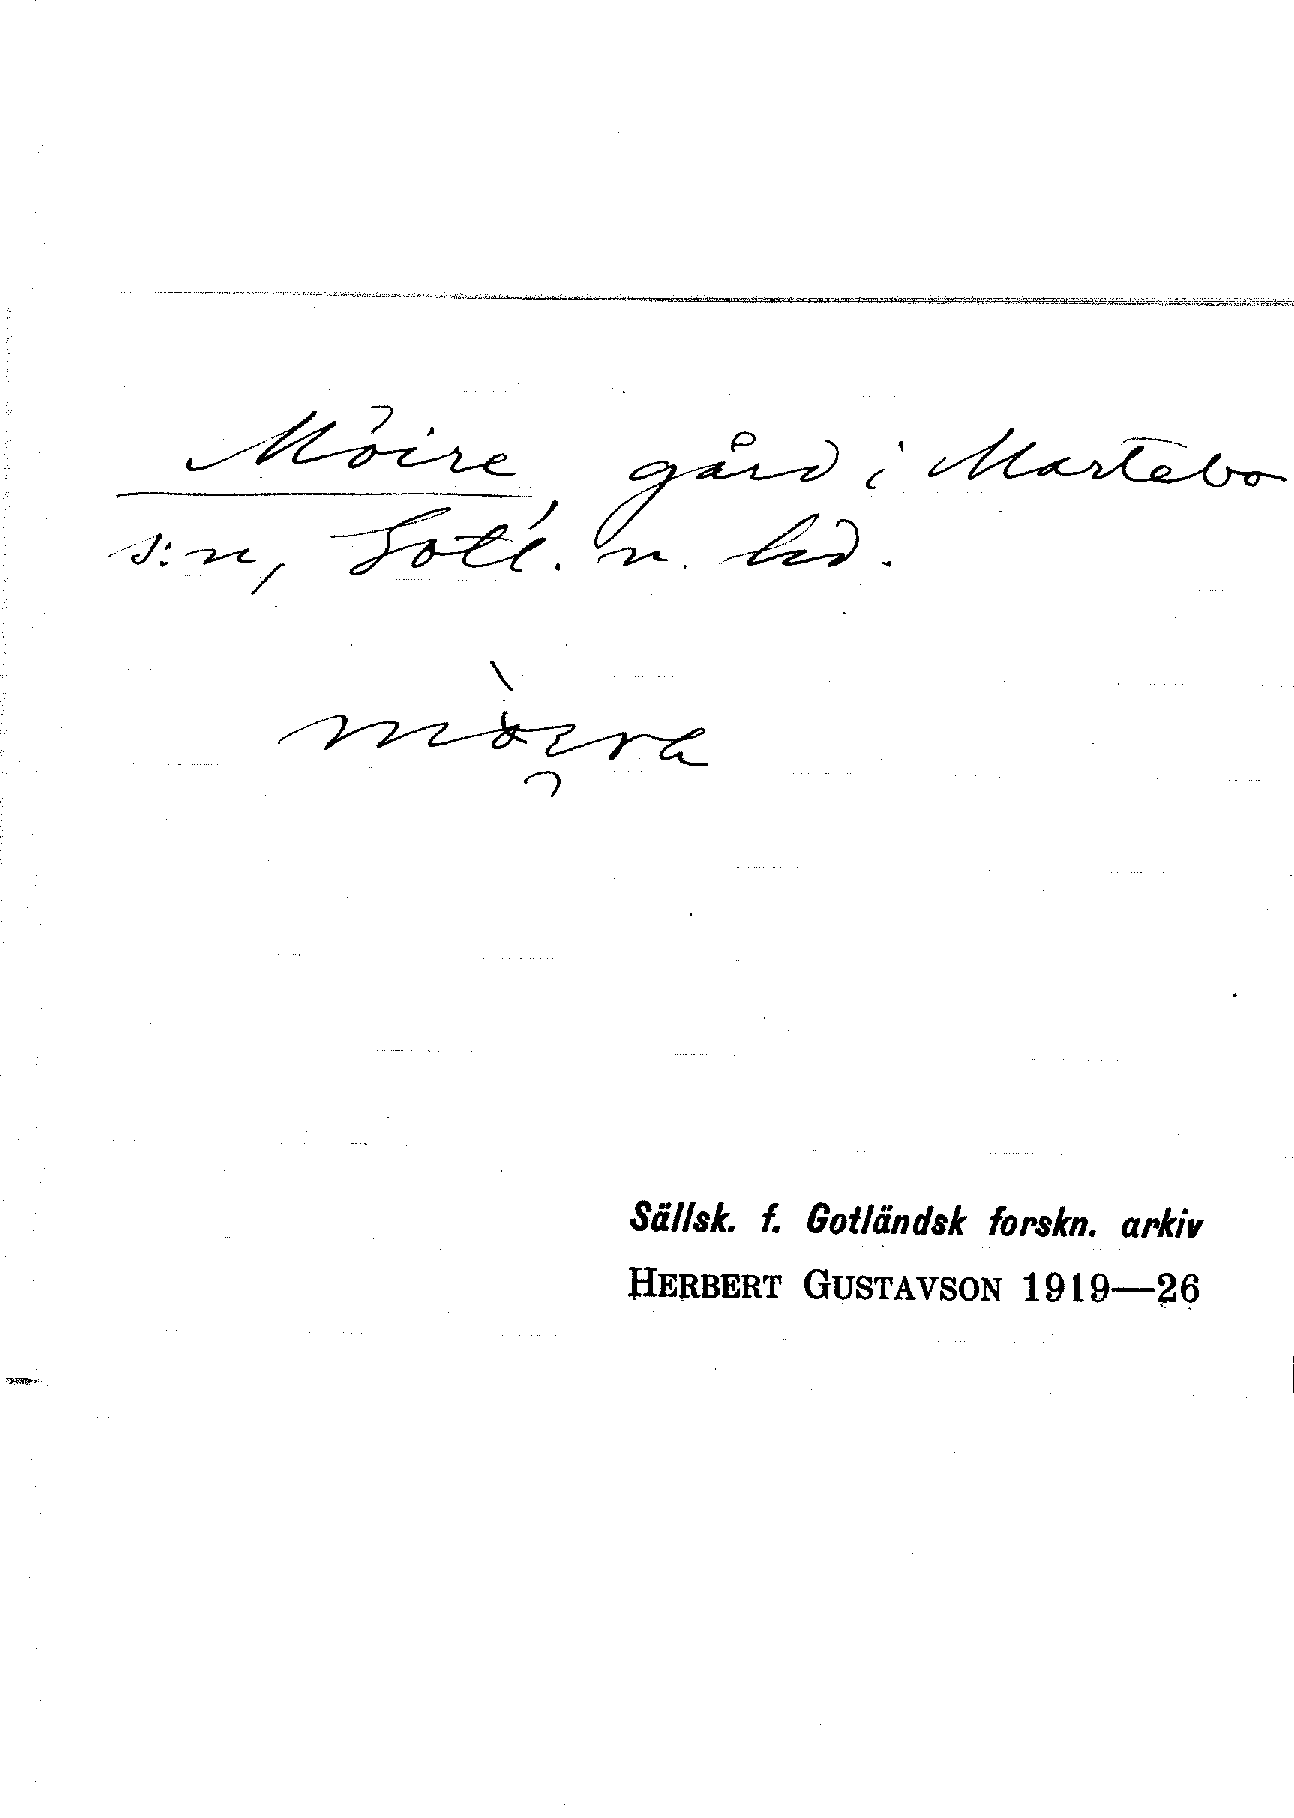 Möire, gård i Martebo
s:n, Gotl. n. hd.
Sällsk. f. Gotländsk forskn. arkiv
HERBERT GUSTAVSON 1919—26